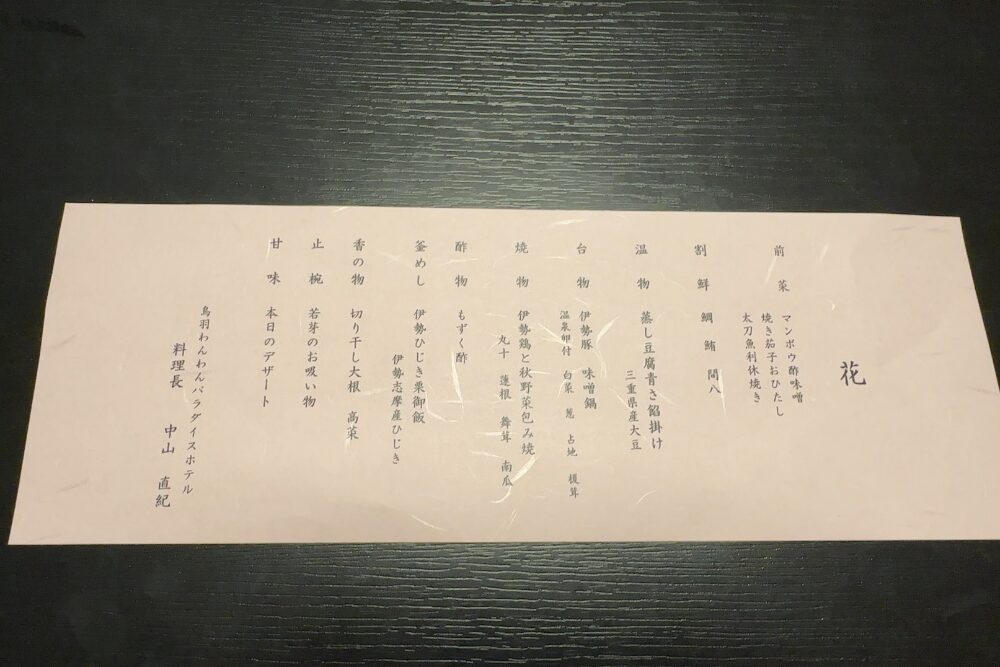 花
前菜 マンボウ酢味噌
焼き茄子おひたし
太刀魚利休焼き
割鮮 鯛 鮪 間八
温物 蒸し豆腐青さ餡掛け
三重県産大豆
台物 伊勢豚 味噌鍋
温泉卵付 白菜 葱 占地 榎茸
焼物 伊勢鶏と秋野菜包み焼
丸十 蓮根 舞茸 南瓜
酢物 もずく酢
釜めし 伊勢ひじき栗御飯
伊勢志摩産ひじき
香の物 切り干し大根 高菜
止椀 若芽のお吸い物
甘味 本日のデザート
鳥羽わんわんパラダイスホテル
料理長 中山 直紀